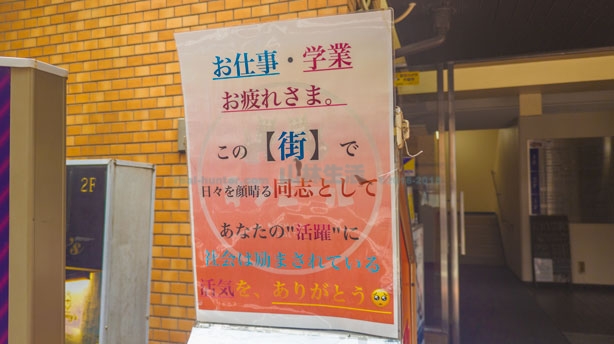 お仕事・学業
お疲れさま。
この【街】で
日々を顔晴る同志として
あなたの"活躍"に
社会は励まされている
活気を、ありがとう🥺
2F